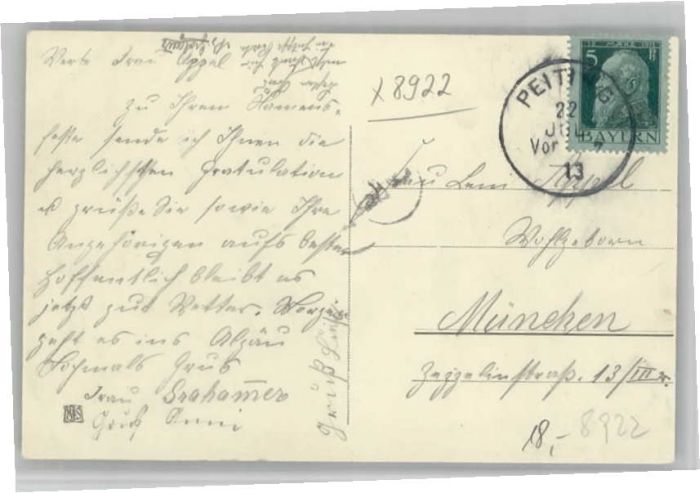 Werte Frau Appel
zu Ihrem Namens-
feste sende ich Ihnen die
herzlichsten Gratulation
u grüße Sie sowie Ihre
Angehörigen aufs beste
hoffentlich bleibt es
jetzt gut Wetter. Morgen
geht es ins Algäu
Nochmals Gruß
Frau Grahammer
Gruß Anni
Gruß
x 8922
5
BAYERN
PEITING
22
JUL
Vor
13
Frau Leni Appel
Wohlgeborn
München
Zeppelinstraß. 13/III r.
18,- 8922